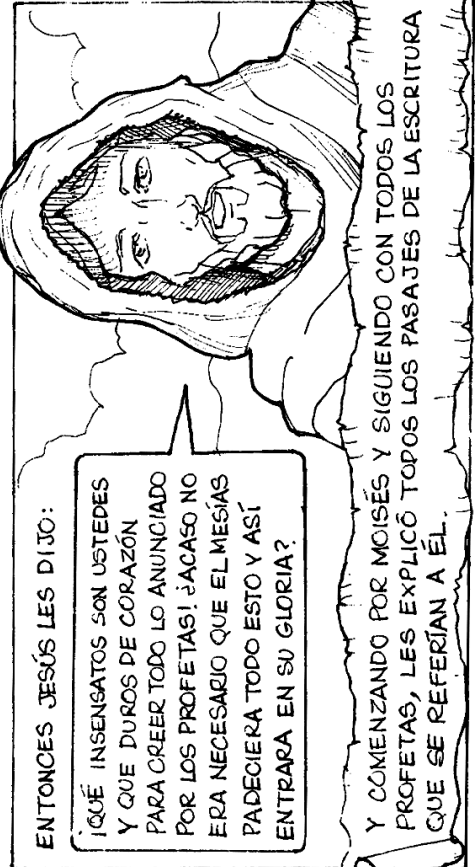 ENTONCES JESÚS LES DIJO:
¡QUÉ INSENSATOS SON USTEDES
Y QUE DUROS DE CORAZÓN
PARA CREER TODO LO ANUNCIADO
POR LOS PROFETAS! ¿ACASO NO
ERA NECESARIO QUE EL MESÍAS
PADECIERA TODO ESTO Y ASÍ
ENTRARA EN SU GLORIA?
Y COMENZANDO POR MOISÉS Y SIGUIENDO CON TODOS LOS
PROFETAS, LES EXPLICÓ TODOS LOS PASAJES DE LA ESCRITURA
QUE SE REFERÍAN A ÉL.